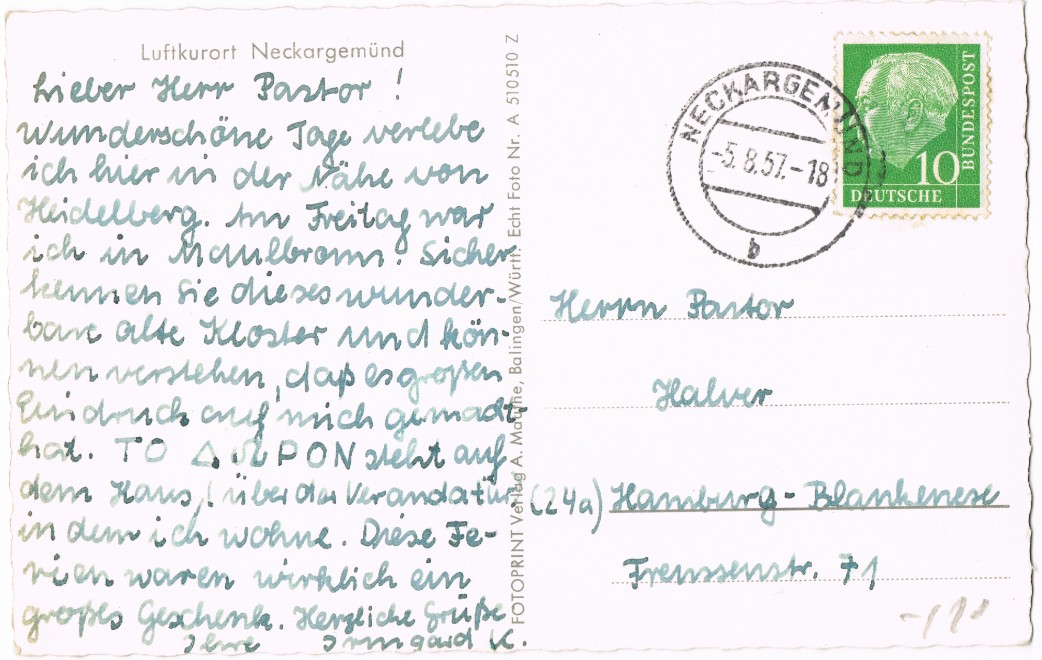 Luftkurort Neckargemünd
Lieber Herr Pastor!
Wunderschöne Tage verlebe
ich hier in der Nähe von
Heidelberg. Am Freitag war
ich in Maulbronn. Sicher
kennen Sie dieses wunder-
bare alte Kloster und kön-
nen verstehen, daß es großen
Eindruck auf mich gemacht
hat. ΤΟ ΔΩΡΟΝ steht auf
dem Haus, über der Verandatür,
in dem ich wohne. Diese Fe-
rien waren wirklich ein
großes Geschenk. Herzliche Grüße
Ihre Irmgard K.
FOTOPRINT Verlag A. Mauthe, Balingen/Württ. Echt Foto Nr. A 510510 Z
NECKARGEMÜND
-5.8.57.-18
b
BUNDESPOST
10
DEUTSCHE
Herrn Pastor
Halver
(24a) Hamburg-Blankenese
Frenssenstr. 71